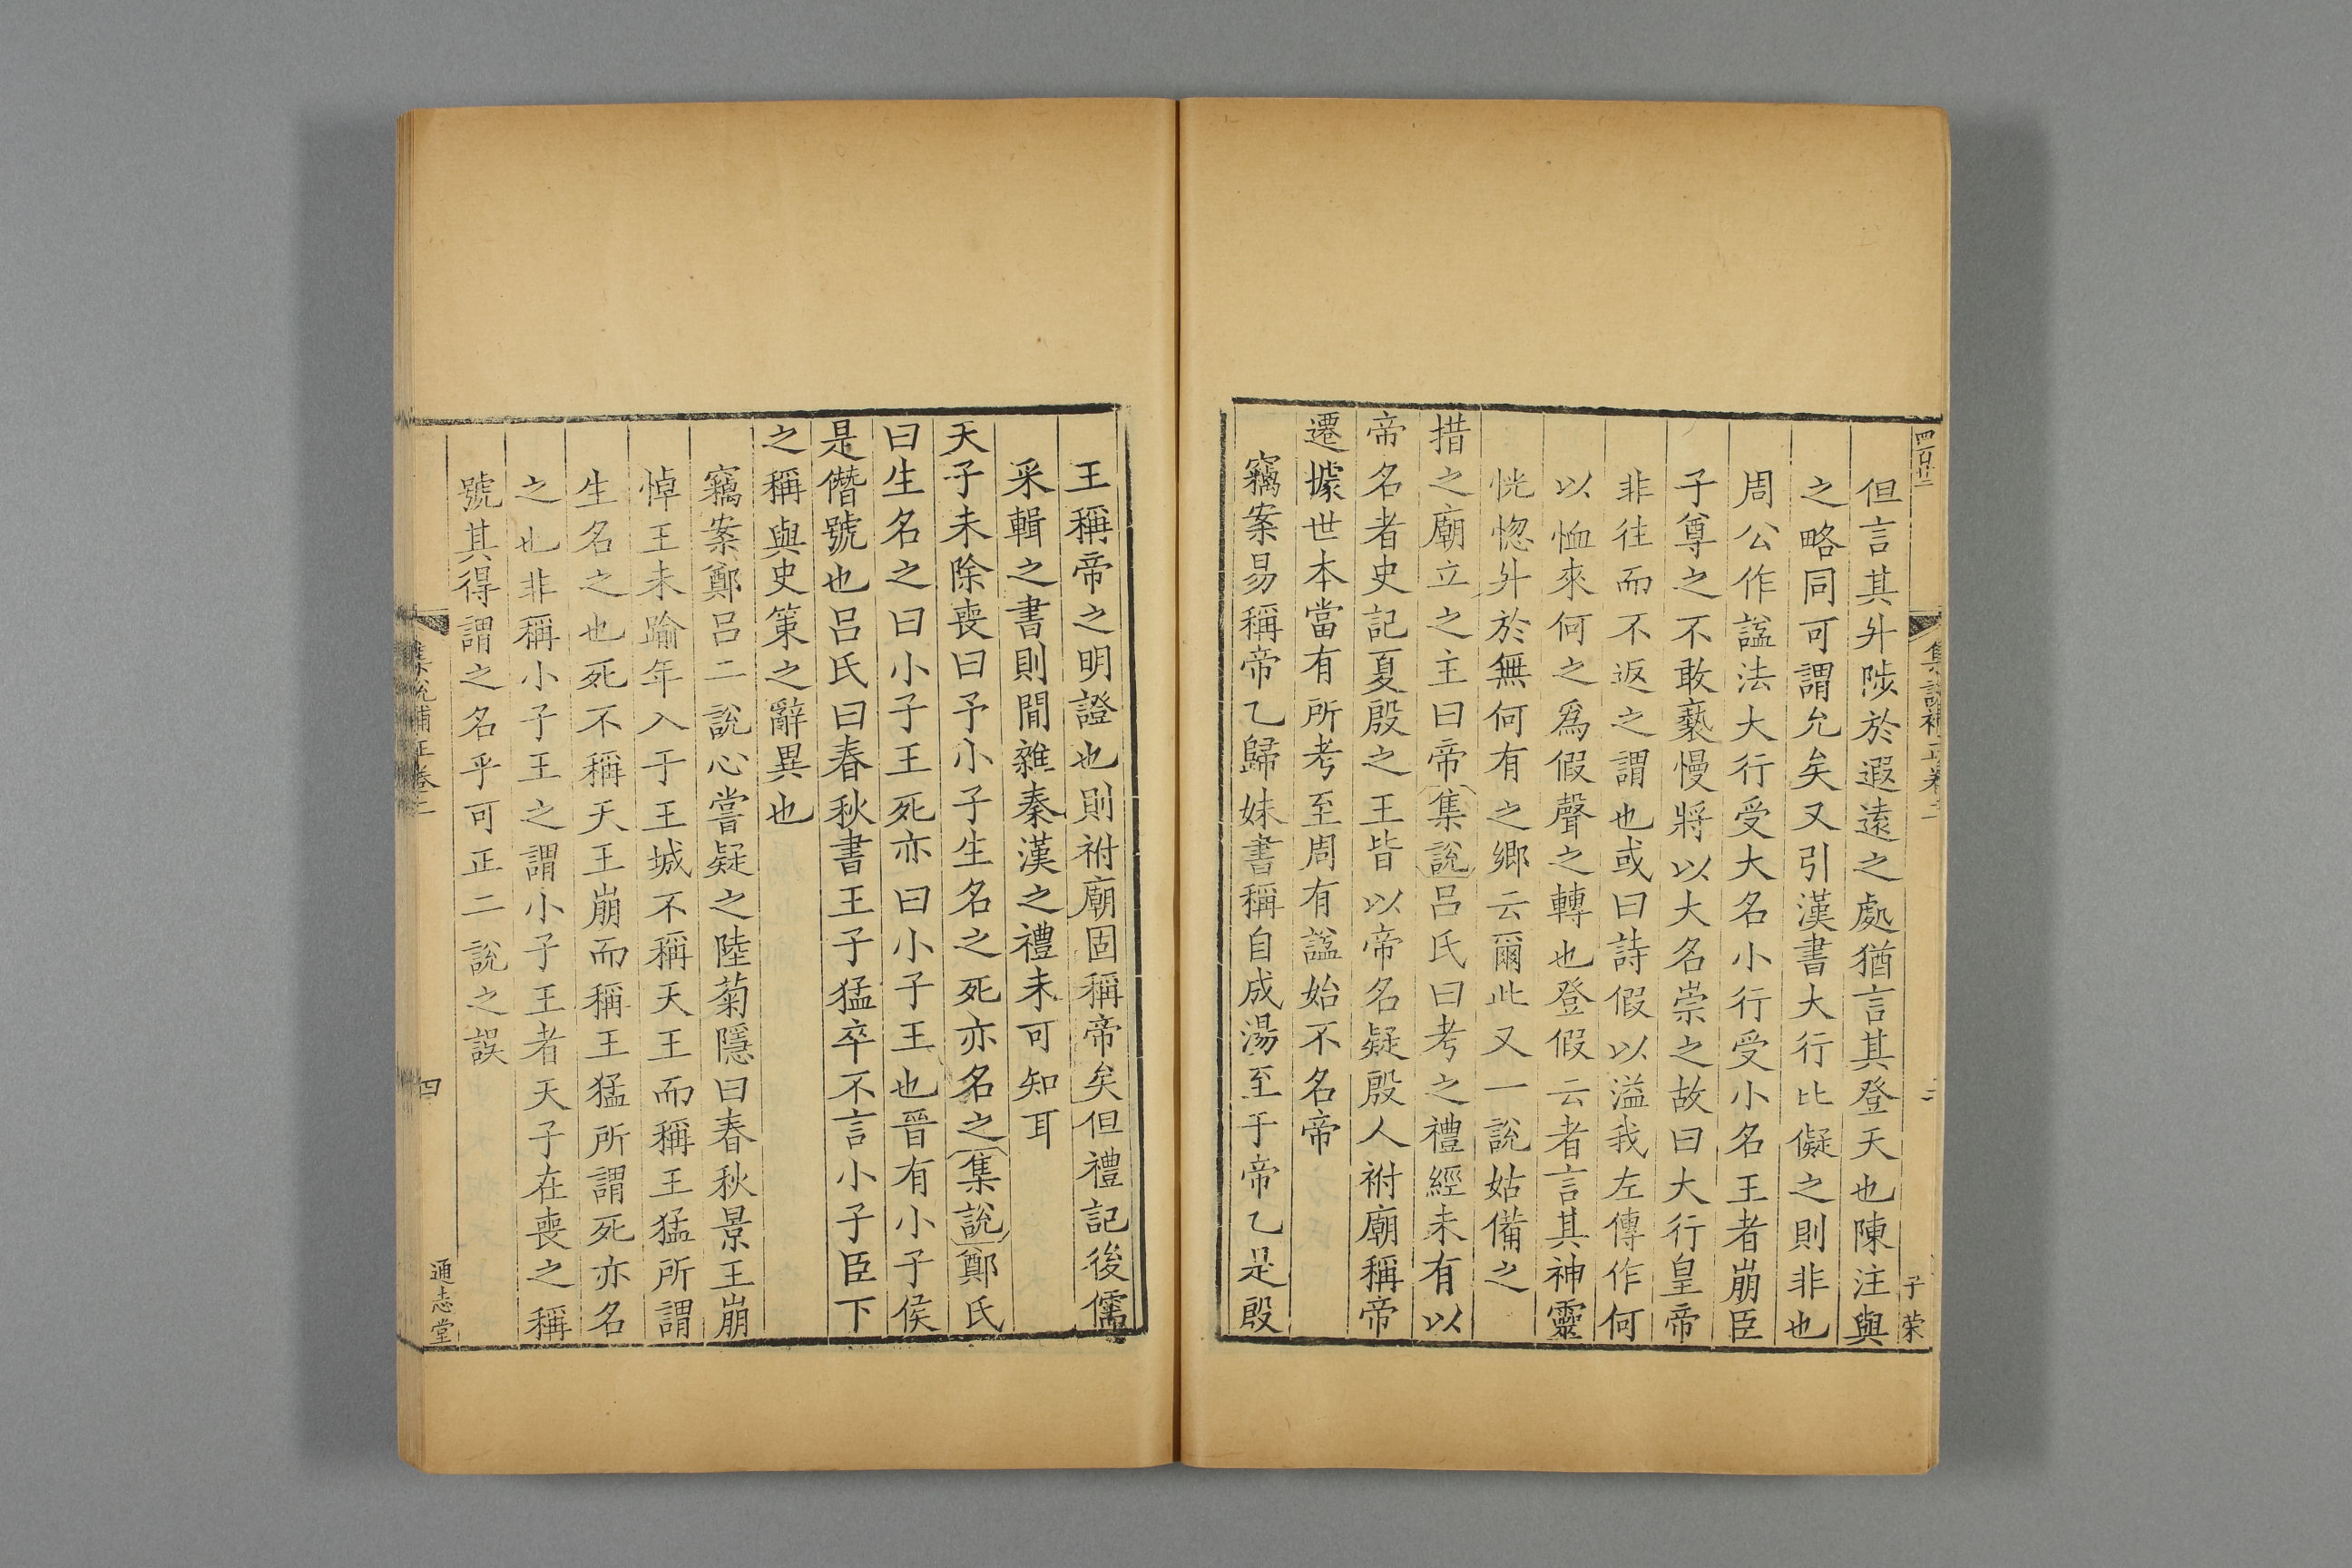 四百廿二
集說補正卷二
三
子荣
但言其升陟於遐遠之處猶言其登天也陳注與
之略同可謂允矣又引漢書大行比儗之則非也
周公作諡法大行受大名小行受小名王者崩臣
子尊之不敢褻慢將以大名崇之故曰大行皇帝
非往而不返之謂也或曰詩假以溢我左傳作何
以恤來何之爲假聲之轉也登假云者言其神靈
恍惚升於無何有之鄉云爾此又一說姑備之
措之廟立之主曰帝集說呂氏曰考之禮經未有以
帝名者史記夏殷之王皆以帝名疑殷人祔廟稱帝
遷據世本當有所考至周有諡始不名帝
竊案易稱帝乙歸妹書稱自成湯至于帝乙是殷
王稱帝之明證也則祔廟固稱帝矣但禮記後儒
采輯之書則閒雜秦漢之禮未可知耳
天子未除喪曰予小子生名之死亦名之集說鄭氏
曰生名之曰小子王死亦曰小子王也晉有小子侯
是僭號也呂氏曰春秋書王子猛卒不言小子臣下
之稱與史策之辭異也
竊案鄭呂二說心嘗疑之陸菊隱曰春秋景王崩
悼王未踰年入于王城不稱天王而稱王猛所謂
生名之也死不稱天王崩而稱王猛所謂死亦名
之也非稱小子王之謂小子王者天子在喪之稱
號其得謂之名乎可正二說之誤
集說補正卷二
四
通志堂